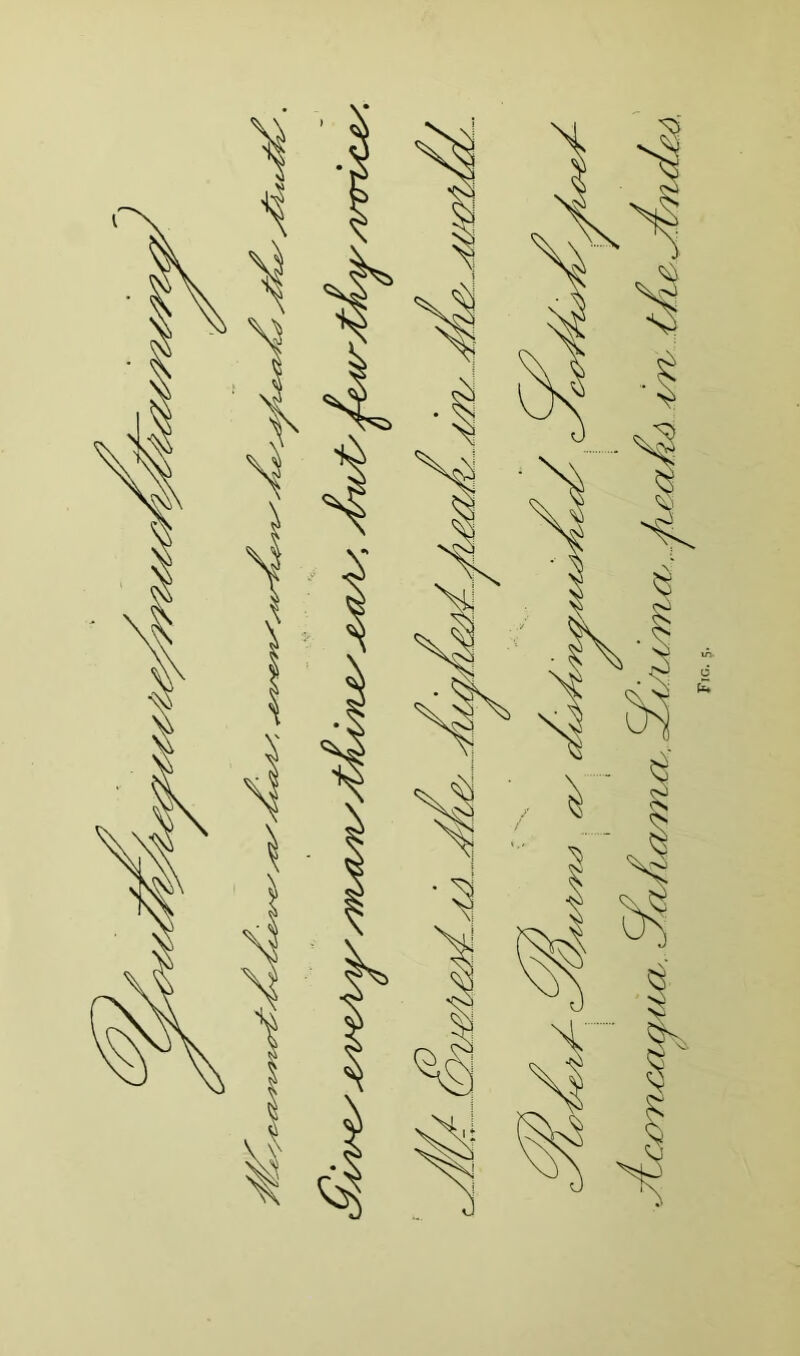 Youth require much training
We cannot believe a liar, even when he speaks the truth.
Give every man thine ear, but few thy voice.
Mt. Everest is the highest peak in the world.
Robert Burns a distinguished Scottish poet
Aconcaqua, Sahama, Lirima, peaks in the Andes.
Fig. 5.